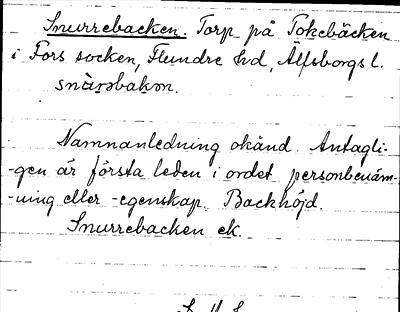 Snurrebacken. Torp på Tokebäcken
i Fors socken, Flundre hd, Älfsborgs l.
snàrsbakon.
Namnanledning okänd. Antagli-
-gen är första leden i ordet personbenäm-
-ning eller -egenskap. Backhöjd.
Snurrebacken ek.